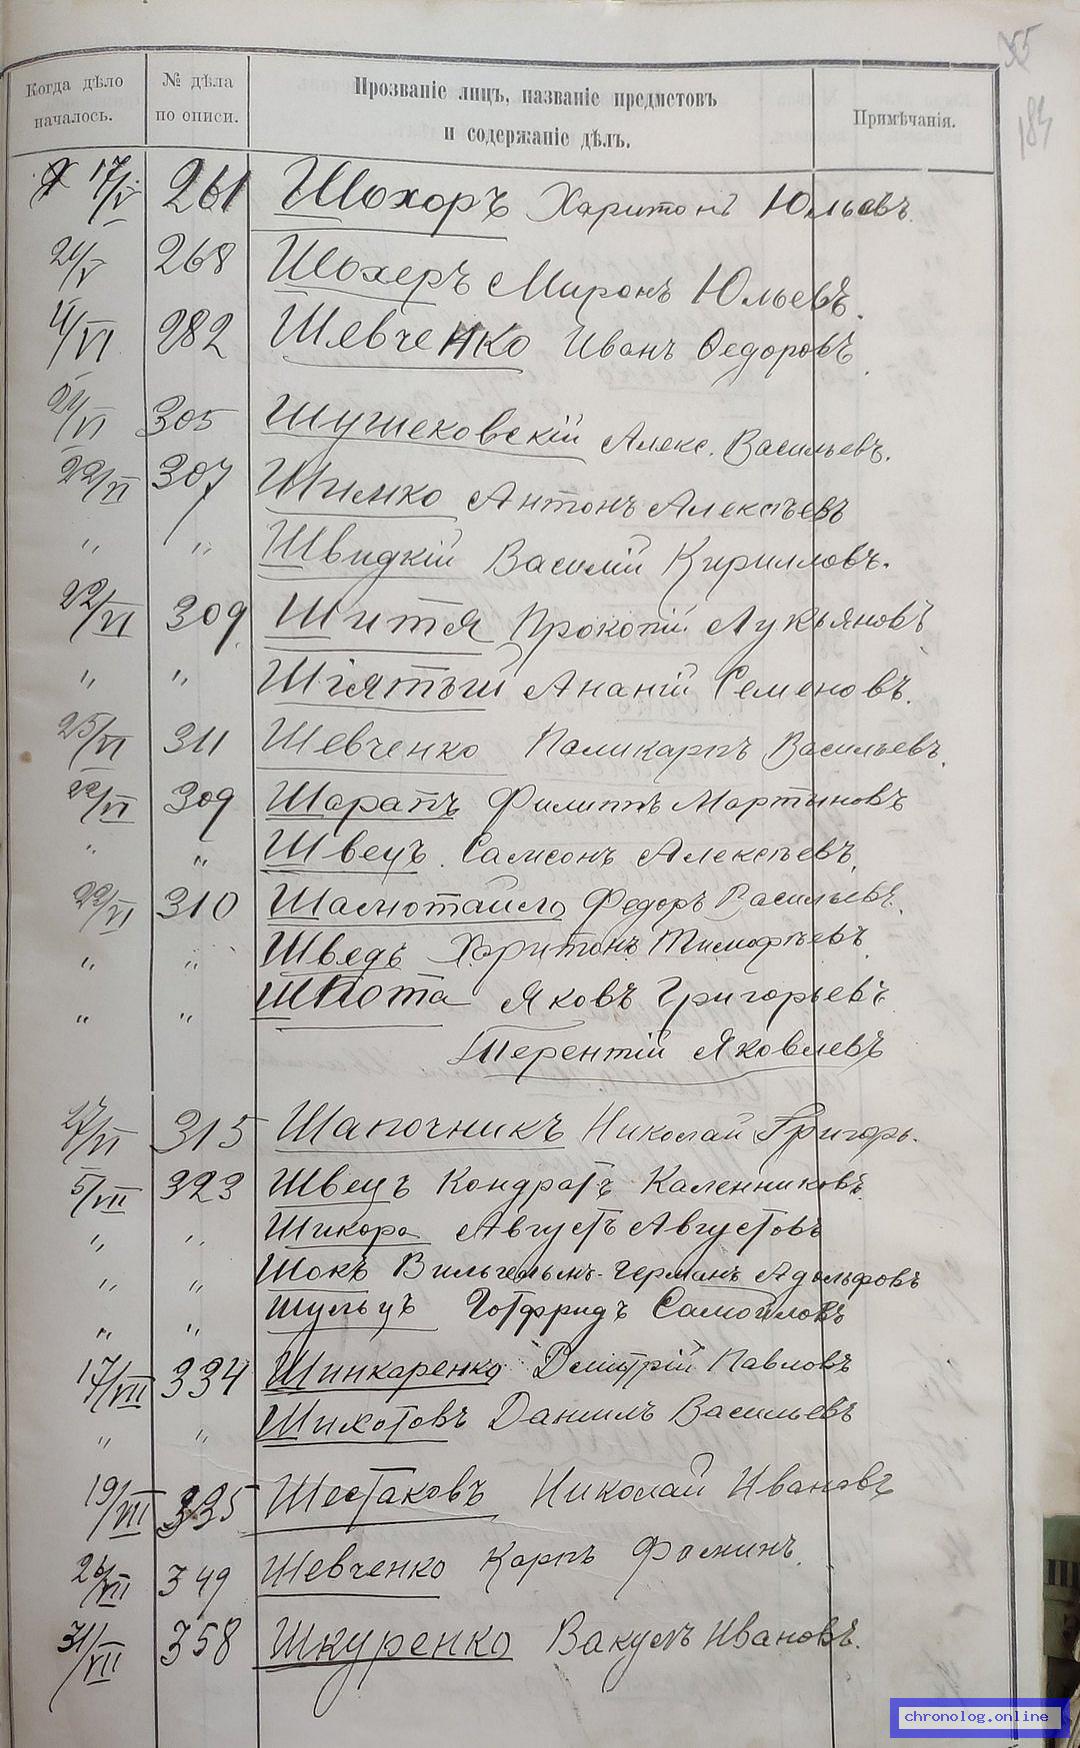 35
184
Когда дѣло началось.
№ дѣла по описи.
Прозваніе лицъ, названіе предметовъ и содержаніе дѣлъ.
Примѣчанія.
17/V 261 Шохоръ Харитонъ Юльевъ.
268 Шохеръ Миронъ Юльевъ.
4/VI 282 Шевченко Иванъ Ѳедоровъ.
21/VI 305 Алекс. Васильевъ.
22/VI 307 Шимко Антонъ Алексѣевъ
" " Швидкій Василій Кирилловъ.
22/VI 309. Шитя Прокопій Лукьяновъ
" " Ананій Семеновъ.
25/VI 311 Шевченко Поликарпъ Васильевъ.
22/VI 309 Шарапъ Филиппъ Мартыновъ
" " Швецъ Самсонъ Алексѣевъ.
22/VI 310 Федоръ Васильевъ.
" " Шведъ Харитонъ Тимофѣевъ
" " Шпота Яковъ Григорьевъ
Терентій Яковлевъ
27/VI 315 Шапочникъ Николай Григорь.
5/VII 323 Швецъ Кондратъ Каленниковъ.
" " Шикора Августъ Августовъ
" " Шокъ Вильгельмъ-Германъ Адольфовъ
" " Шульцъ Готфридъ Самойловъ
17/VII 334 Шинкаренко Дмитрій Павловъ
" " Шихотовъ Даніилъ Васильевъ
19/VII 335 Шестаковъ Николай Ивановъ
26/VII 349 Шевченко Карпъ Фоминъ.
31/VII 358 Шкуренко Вакулъ Ивановъ.
chronolog.online